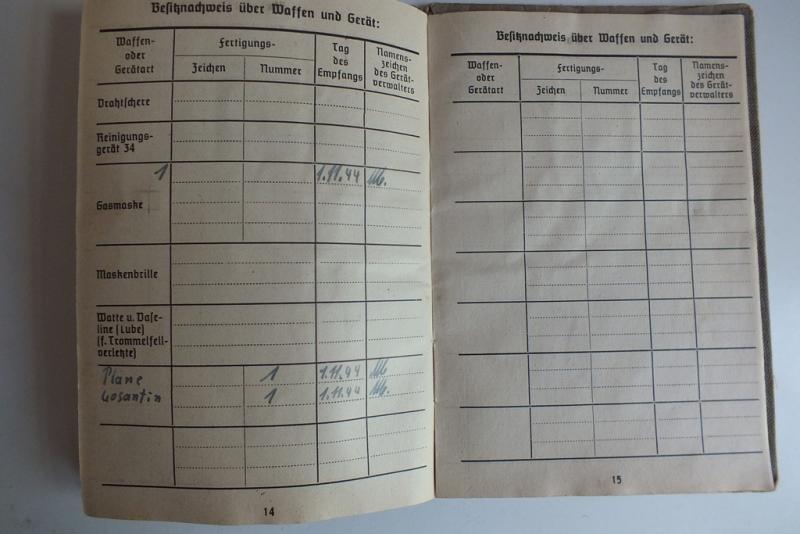 Besitznachweis über Waffen und Gerät:
Waffen-
oder
Gerätart
Fertigungs-
Zeichen
Nummer
Tag
des
Empfangs
Namens-
zeichen
des Gerät-
verwalters
Drahtschere
Reinigungs-
gerät 34
1 1.11.44
Gasmaske
Maskenbrille
Watte u. Vase-
line (Lube)
(f. Trommelfell-
verletzte)
Plane 1 1.11.44
Losantin 1 1.11.44
14
Besitznachweis über Waffen und Gerät:
Waffen-
oder
Gerätart
Fertigungs-
Zeichen
Nummer
Tag
des
Empfangs
Namens-
zeichen
des Gerät-
verwalters
15